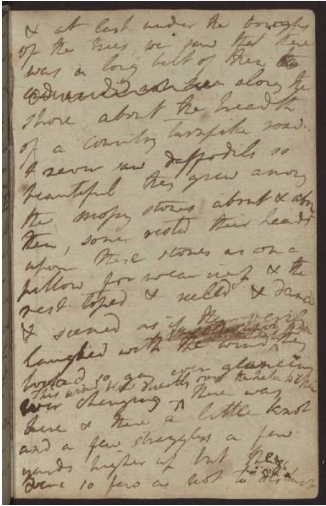 & at last under the boughs
of the trees, we saw that there
was a long belt of them
along the
shore, about the breadth
of a country turnpike road.
I never saw daffodils so
beautiful they grew among
the mossy stones about & about
them, some rested their heads
upon these stones as on a
pillow for weariness & the
rest tossed & reeled & danced
& seemed as if they verily
laughed with the wind
they looked so gay ever glancing
This wind blew directly over the lake to them
ever changing there was
here & there a little knot
and a few stragglers a few
yards higher up but they
were so few as not to disturb